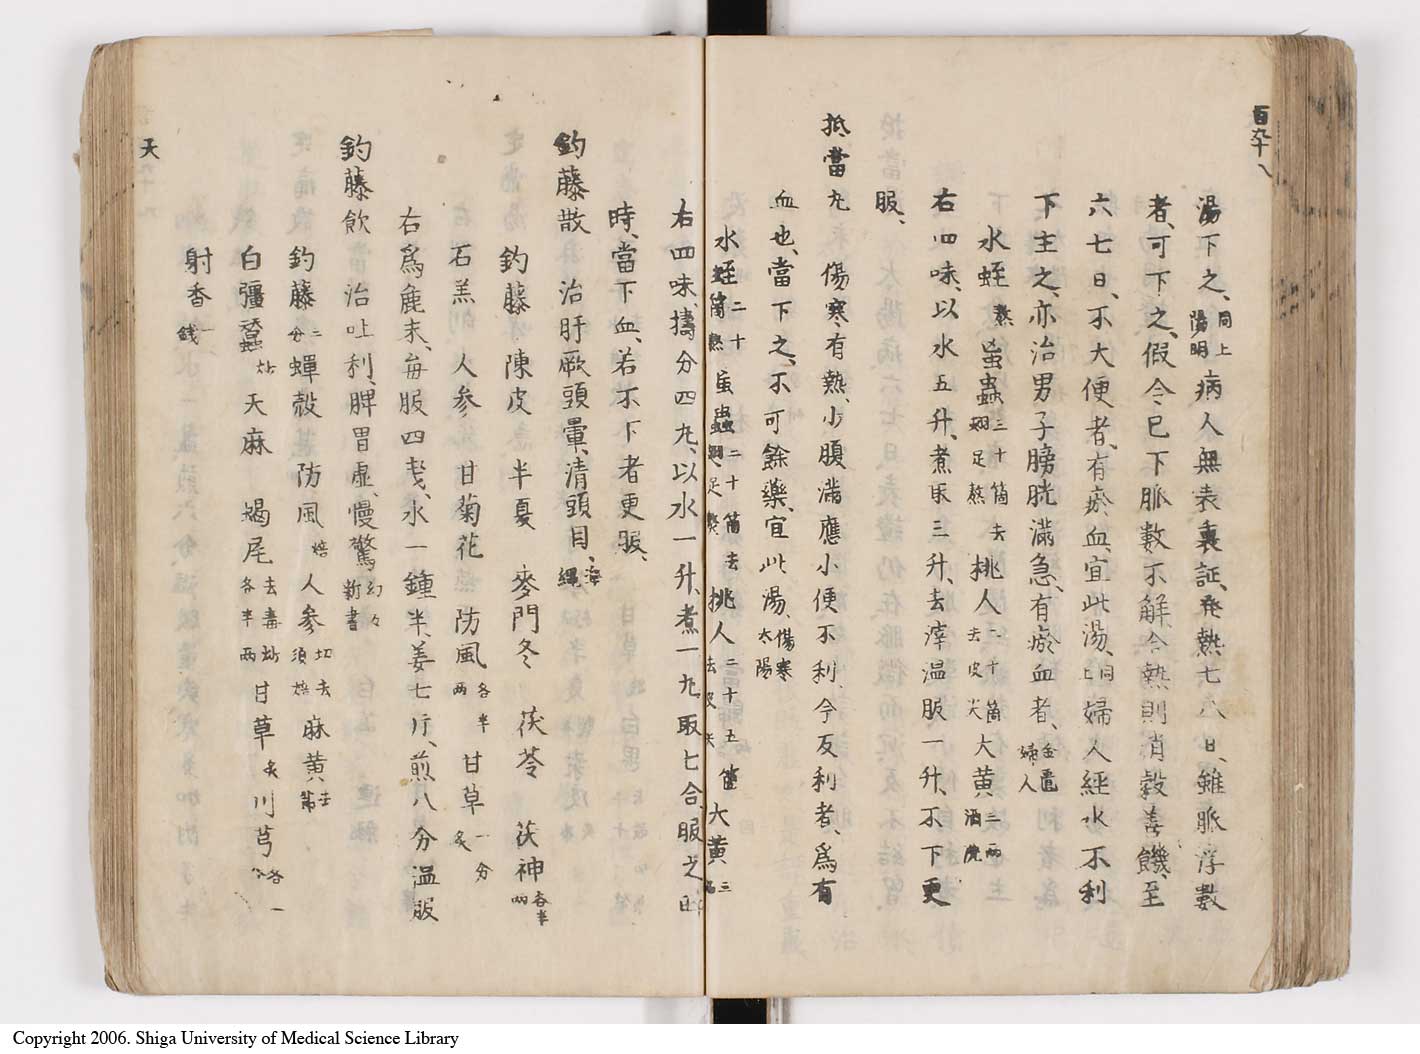 百六十八
湯下之、同上陽明病人無表裏証、発熱七八日、雖脈浮数
者、可下之、假令已下脈數不解合熱則消穀善饑、至
六七日、不大便者、有瘀血、宜此湯、同上婦人経水不利
下主之、亦治男子膀胱滿急、有瘀血者、金匱婦人
水蛭熬 虻蟲三十箇去翅足熬 桃人二十箇去皮尖 大黄三両酒洗
右四味、以水五升、煮取三升、去滓温服一升、不下更
服、
抵當丸 傷寒有熱、少腹滿應小便不利、今反利者、爲有
血也、當下之、不可餘藥、宜此湯、傷寒太陽
水蛭二十箇熬 虻蟲二十箇去翅足熬 桃人二十五箇去皮尖 大黄三
右四味、擣分四丸、以水一升、煮一丸、取七合、服之晬
時、當下血、若不下者更服、
釣藤散 治肝厥頭暈、清頭目、
釣藤 陳皮 半夏 麥門冬 茯苓 茯神各半両
石羔 人参 甘菊花 防風各半両 甘草一分炙
右爲麁末、毎服四戔、水一鍾半、姜七斤、煎八分温服
釣藤飲 治吐利、脾胃虚、慢驚幻々新書
釣藤二分 蟬殻 防風焙 人参切去須焙 麻黄去節
白彊蠶炒 天麻 蝎尾去毒炒各半両 甘草炙 川芎各一分
射香一銭
天
Copyright 2006. Shiga University of Medical Science Library